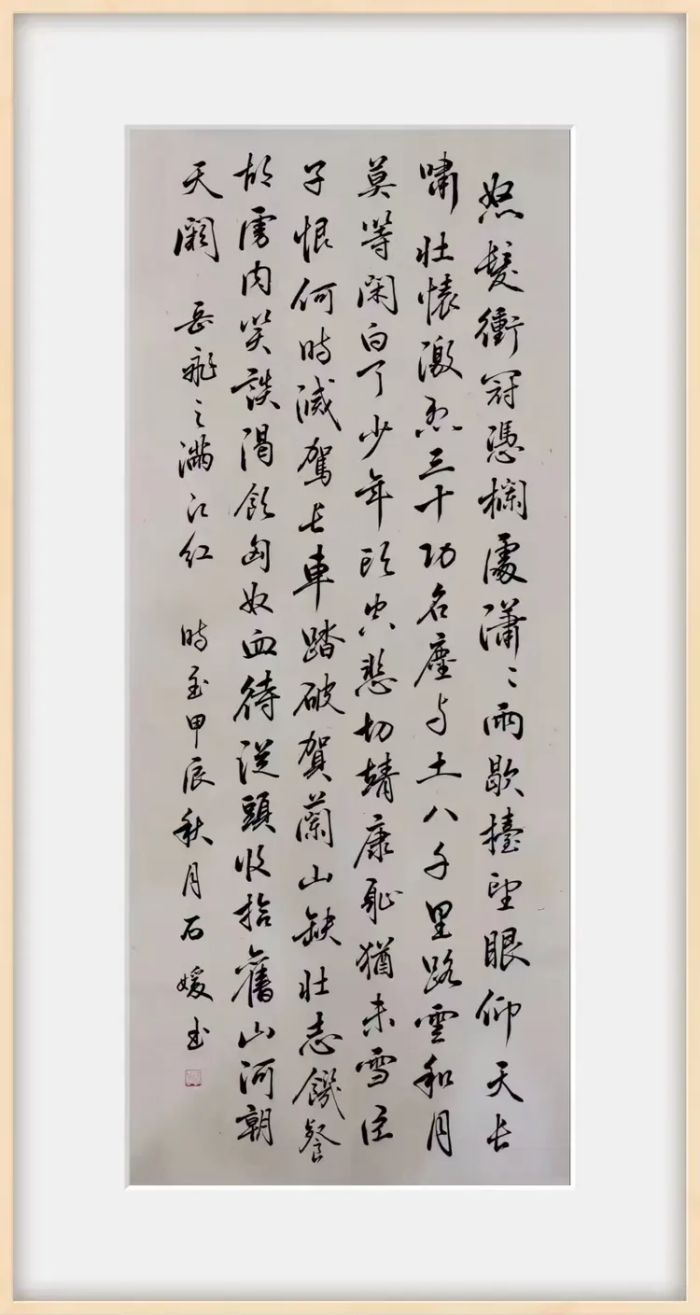 怒髮衝冠憑欄處瀟〻雨歇擡望眼仰天長
嘯壯懷激烈三十功名塵与土八千里路雲和月
莫等閑白了少年頭空悲切靖康恥猶未雪臣
子恨何時滅駕長車踏破賀蘭山缺壯志饑餐
胡虜肉笑談渴飲匈奴血待從頭收拾舊山河朝
天闕 岳飛之滿江紅 時至甲辰秋月石媛書